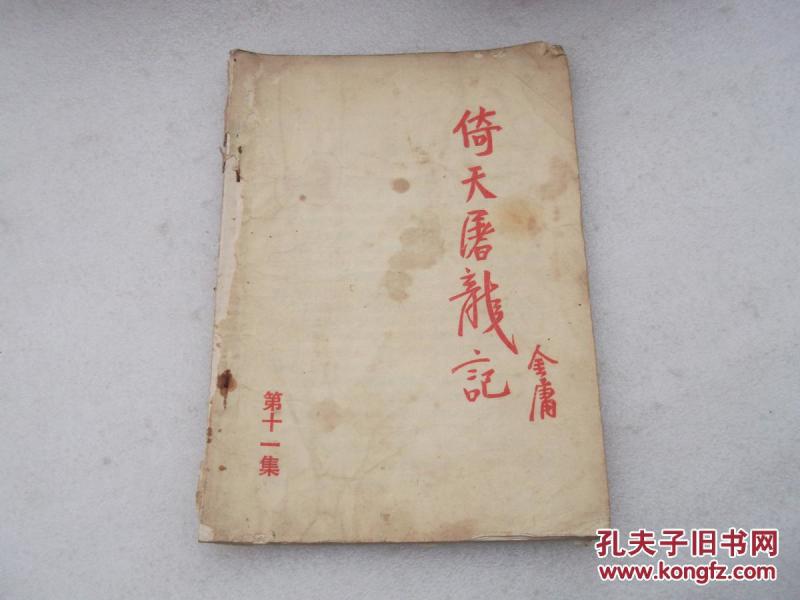 倚天屠龍記
金庸
第十一集
孔夫子旧书网
www.kongfz.com